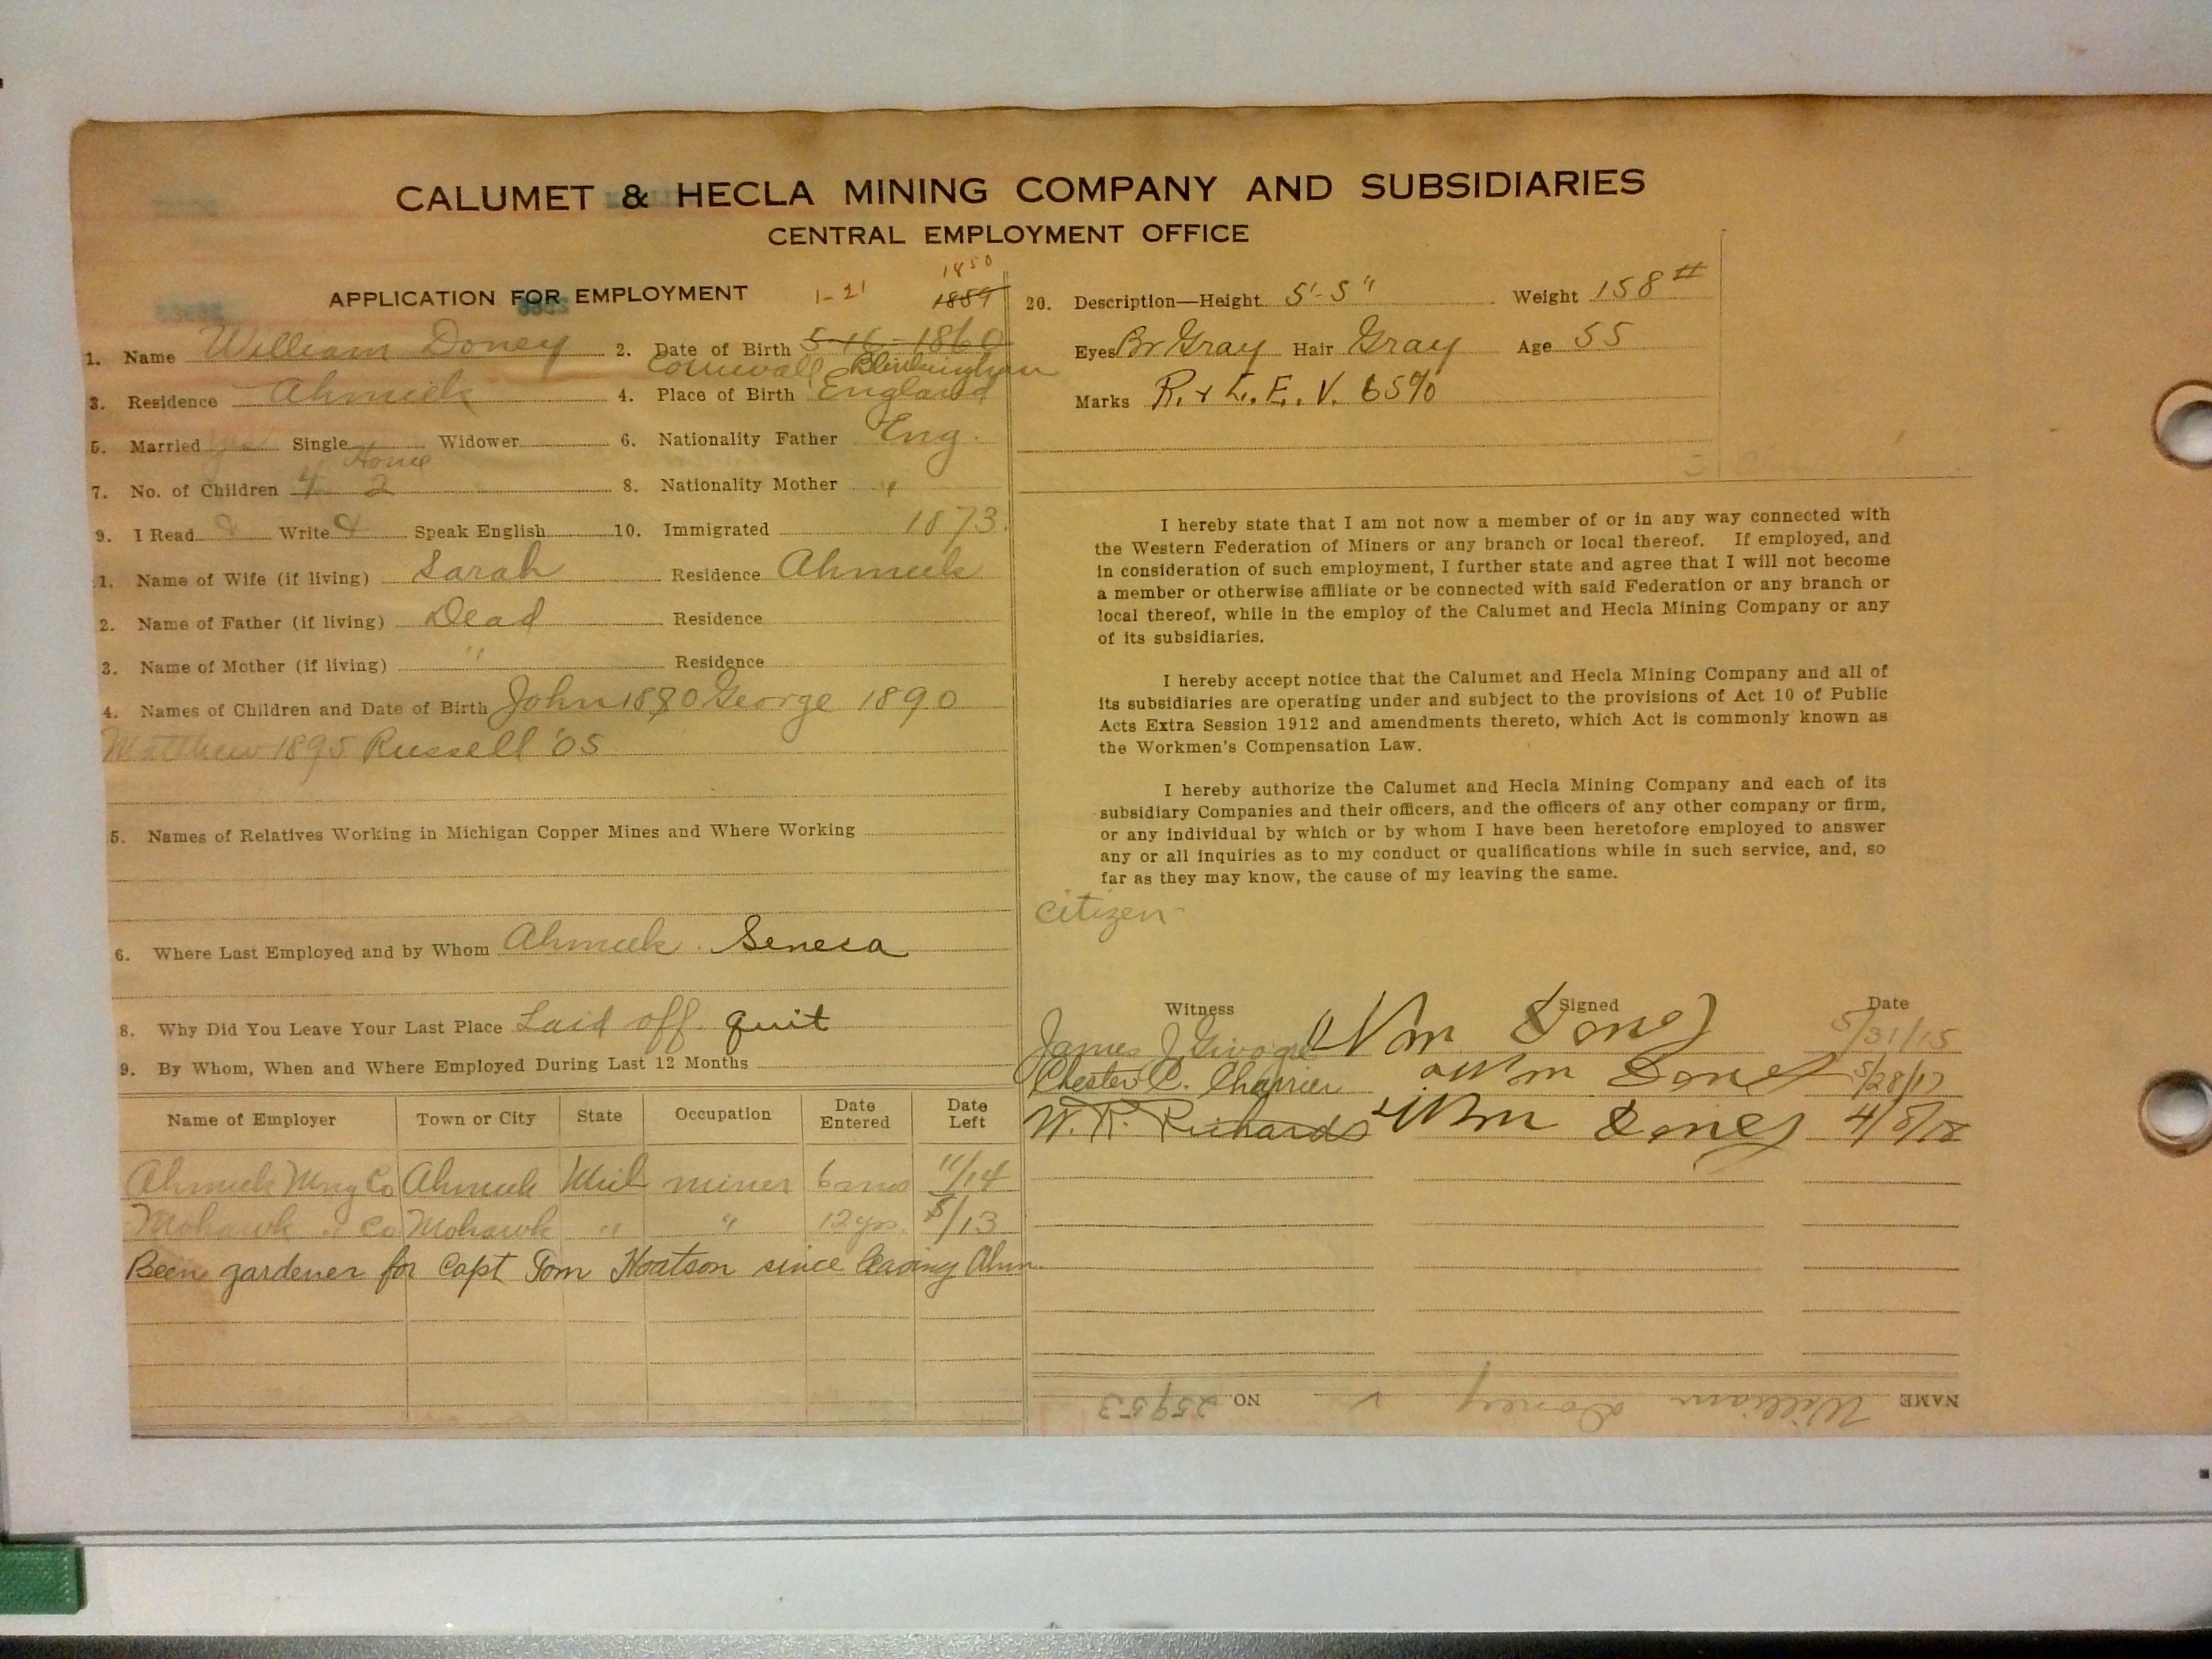 CALUMET & HECLA MINING COMPANY AND SUBSIDIARIES
CENTRAL EMPLOYMENT OFFICE
APPLICATION FOR EMPLOYMENT 1-21 1850
1859
1. Name William Doney 2. Date of Birth 5-16-1860
Cornwall
3. Residence Ahmeek 4. Place of Birth England
5. Married Single Widower 6. Nationality Father Eng.
Home
7. No. of Children 4 2 8. Nationality Mother "
9. I Read Write Speak English 10. Immigrated 1873.
1. Name of Wife (if living) Sarah Residence Ahmeek
2. Name of Father (if living) Dead Residence
3. Name of Mother (if living) " Residence
4. Names of Children and Date of Birth John 1880 George 1890
Matthew 1895 Russell '05
5. Names of Relatives Working in Michigan Copper Mines and Where Working
6. Where Last Employed and by Whom Ahmeek. Seneca
8. Why Did You Leave Your Last Place Laid off. quit
9. By Whom, When and Where Employed During Last 12 Months
Name of Employer Town or City State Occupation Date Entered Date Left
Ahmeek Mng Co Ahmeek Mich miner 6 mos 11/14
Mohawk " Co Mohawk " " 12 yrs. 8/13
Been gardener for Capt Tom Hoatson since leaving Ahm.
20. Description—Height 5'-5" Weight 158#
Eyes Br Gray Hair Gray Age 55
Marks R. & L. E. V. 65%
I hereby state that I am not now a member of or in any way connected with
the Western Federation of Miners or any branch or local thereof. If employed, and
in consideration of such employment, I further state and agree that I will not become
a member or otherwise affiliate or be connected with said Federation or any branch or
local thereof, while in the employ of the Calumet and Hecla Mining Company or any
of its subsidiaries.
I hereby accept notice that the Calumet and Hecla Mining Company and all of
its subsidiaries are operating under and subject to the provisions of Act 10 of Public
Acts Extra Session 1912 and amendments thereto, which Act is commonly known as
the Workmen's Compensation Law.
I hereby authorize the Calumet and Hecla Mining Company and each of its
subsidiary Companies and their officers, and the officers of any other company or firm,
or any individual by which or by whom I have been heretofore employed to answer
any or all inquiries as to my conduct or qualifications while in such service, and, so
far as they may know, the cause of my leaving the same.
citizen
Witness Signed Date
James J Wm Doney 5/31/15
Chester C. Charrier Wm Doney 5/28/17
W. R. Richards Wm Doney 4/8/18
NAME William Doney NO. 25953